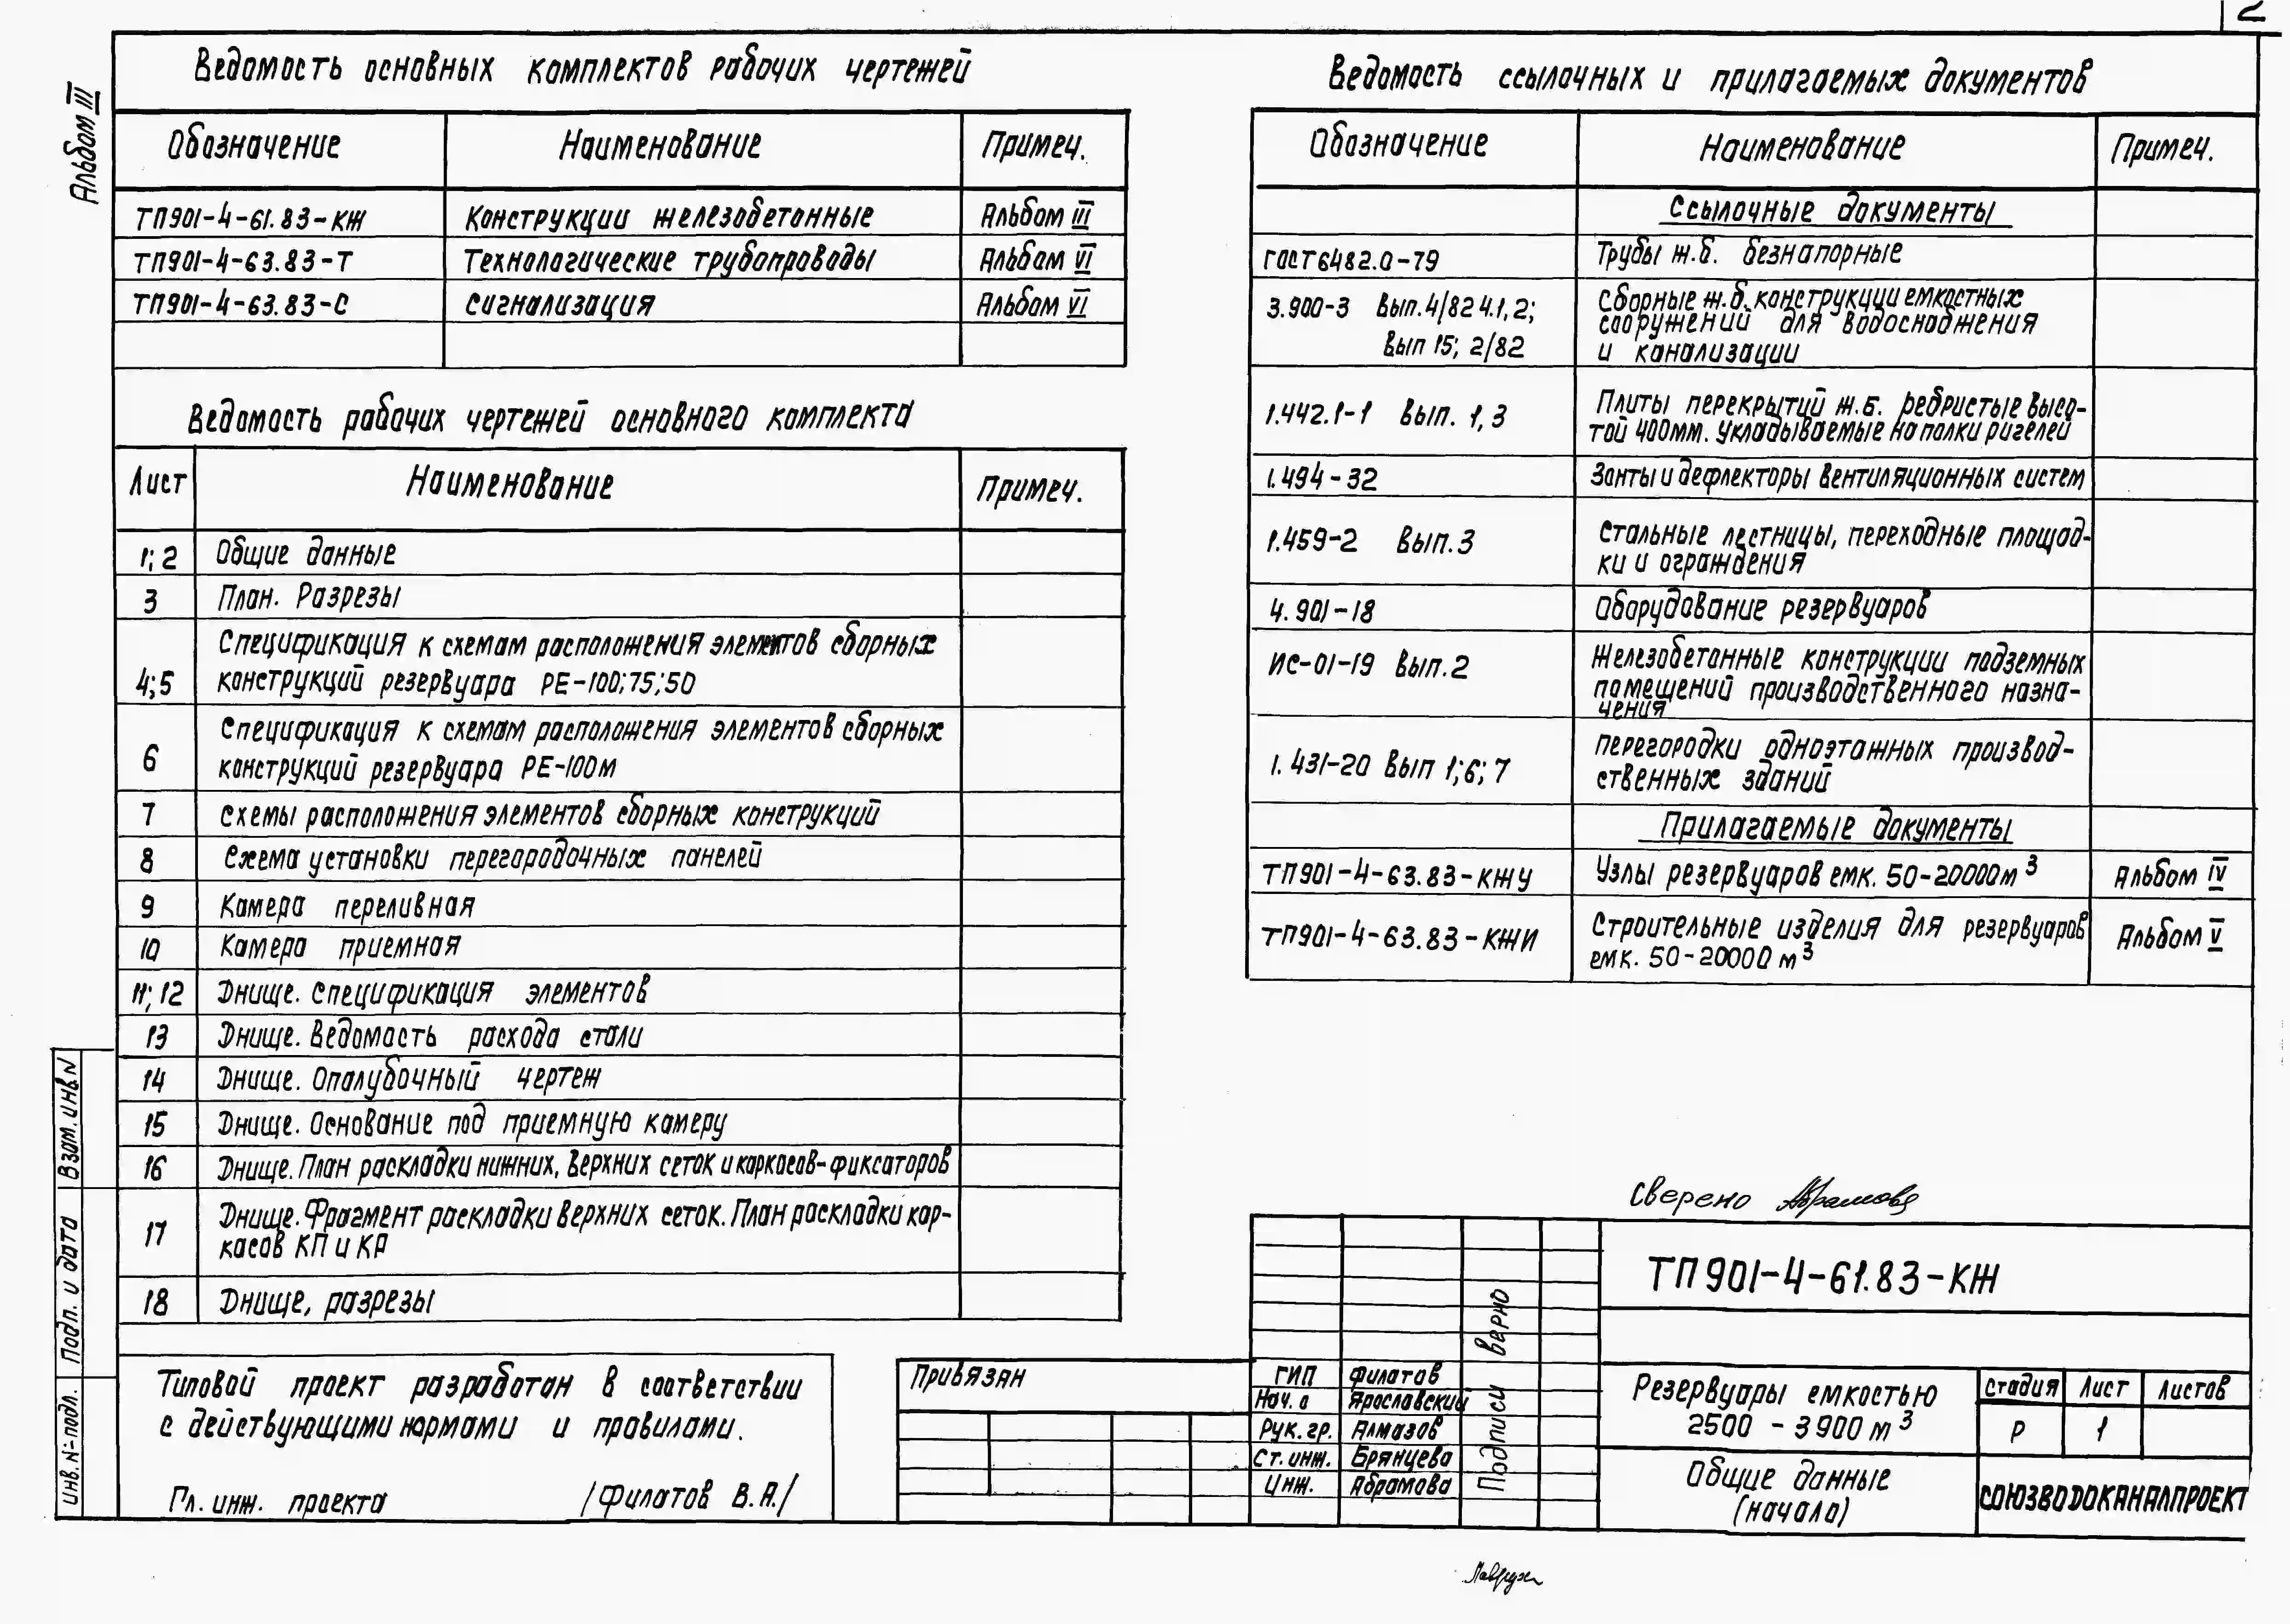 2
Альбом III
Ведомость основных комплектов рабочих чертежей
Обозначение Наименование Примеч.
ТП901-4-61.83-КЖ Конструкции железобетонные Альбом III
ТП901-4-63.83-Т Технологические трубопроводы Альбом VI
ТП901-4-63.83-С Сигнализация Альбом VI
Ведомость рабочих чертежей основного комплекта
Лист Наименование Примеч.
1; 2 Общие данные
3 План. Разрезы
4;5 Спецификация к схемам расположения элементов сборных
конструкций резервуара РЕ-100;75;50
6 Спецификация к схемам расположения элементов сборных
конструкций резервуара РЕ-100м
7 Схемы расположения элементов сборных конструкций
8 Схема установки перегородочных панелей
9 Камера переливная
10 Камера приемная
11; 12 Днище. Спецификация элементов
13 Днище. Ведомость расхода стали
14 Днище. Опалубочный чертеж
15 Днище. Основание под приемную камеру
16 Днище. План раскладки нижних, верхних сеток и каркасов-фиксаторов
17 Днище. Фрагмент раскладки верхних сеток. План раскладки кар-
касов КП и КР
18 Днище, разрезы
Типовой проект разработан в соответствии
с действующими нормами и правилами.
Гл. инж. проекта /Филатов В.А./
Ведомость ссылочных и прилагаемых документов
Обозначение Наименование Примеч.
Ссылочные документы
ГОСТ 6482.0-79 Трубы ж.б. безнапорные
3.900-3 Вып.4/82 ч.1,2; Сборные ж.б. конструкции емкостных
сооружений для водоснабжения
Вып 15; 2/82 и канализации
1.442.1-1 Вып. 1,3 Плиты перекрытий ж.б. ребристые высо-
той 400мм. укладываемые на полки ригелей
1.494-32 Зонты и дефлекторы вентиляционных систем
1.459-2 Вып.3 Стальные лестницы, переходные площад-
ки и ограждения
4.901-18 Оборудование резервуаров
ИС-01-19 Вып.2 Железобетонные конструкции подземных
помещений производственного назна-
чения
1.431-20 Вып 1;6;7 Перегородки одноэтажных производ-
ственных зданий
Прилагаемые документы
ТП901-4-63.83-КЖУ Узлы резервуаров емк. 50-20000м³ Альбом IV
ТП901-4-63.83-КЖИ Строительные изделия для резервуаров Альбом V
емк. 50-20000 м³
Сверено Абрамова
ТП 901-4-61.83-КЖ
Привязан
ГИП Филатов
Нач. о Ярославский
Рук. гр. Алмазов
Ст. инж. Брянцева
Инж. Абрамова
Подписи верно
Резервуары емкостью
2500 - 3900 м³
Стадия Лист Листов
Р 1
Общие данные
(начало)
СОЮЗВОДОКАНАЛПРОЕКТ
Инв. № подл. Подп. и дата Взам. инв N